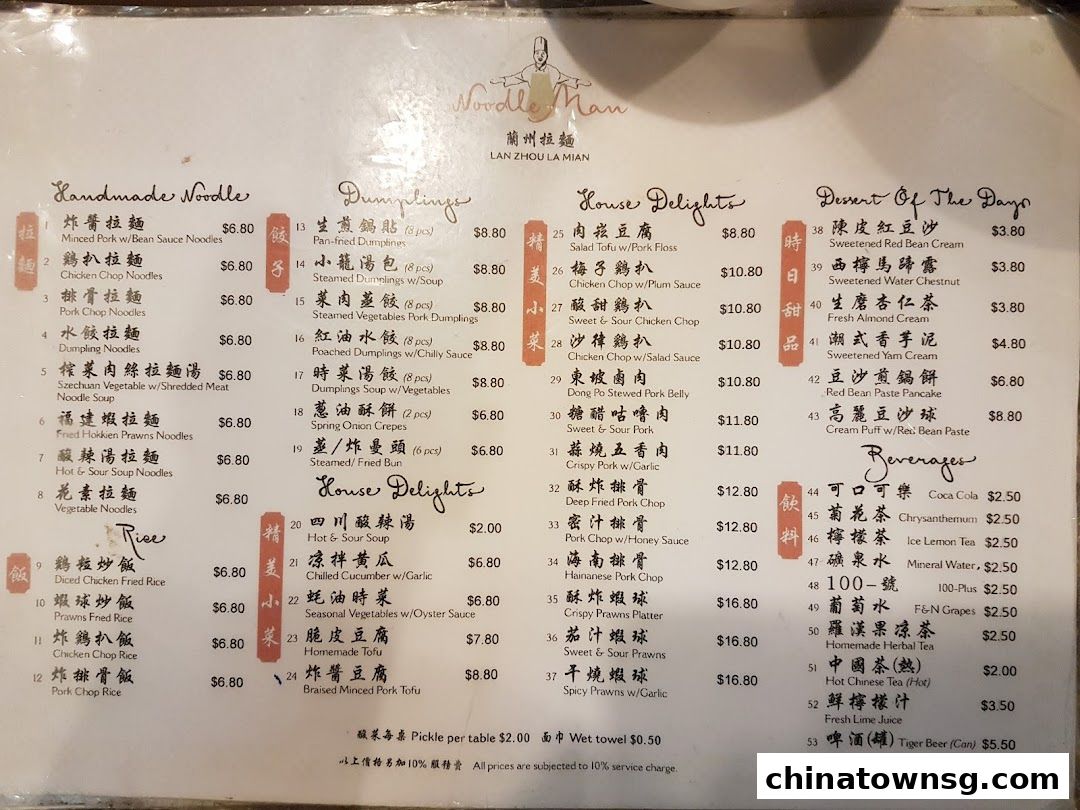 Noodle Man
蘭州拉麵
LAN ZHOU LA MIAN
Handmade Noodle
拉麵
1 炸醬拉麵 $6.80
Minced Pork w/Bean Sauce Noodles
2 鷄扒拉麵 $6.80
Chicken Chop Noodles
3 排骨拉麵 $6.80
Pork Chop Noodles
4 水餃拉麵 $6.80
Dumpling Noodles
5 榨菜肉絲拉麵湯 $6.80
Szechuan Vegetable w/Shredded Meat
Noodle Soup
6 福建蝦拉麵 $6.80
Fried Hokken Prawns Noodles
7 酸辣湯拉麵 $6.80
Hot & Sour Soup Noodles
8 花素拉麵 $6.80
Vegetable Noodles
Rice
飯
9 鷄粒炒飯 $6.80
Diced Chicken Fried Rice
10 蝦球炒飯 $6.80
Prawns Fried Rice
11 炸鷄扒飯 $6.80
Chicken Chop Rice
12 炸排骨飯 $6.80
Pork Chop Rice
Dumplings
餃子
13 生煎鍋貼 (8 pcs) $8.80
Pan-fried Dumplings
14 小籠湯包 (8 pcs) $8.80
Steamed Dumplings w/Soup
15 菜肉蒸餃 (8 pcs) $8.80
Steamed Vegetables Pork Dumplings
16 紅油水餃 (8 pcs) $8.80
Poached Dumplings w/Chilly Sauce
17 時菜湯餃 (8 pcs) $8.80
Dumplings Soup w/Vegetables
18 蔥油酥餅 (2 pcs) $6.80
Spring Onion Crepes
19 蒸/炸曼頭 (6 pcs) $6.80
Steamed/ Fried Bun
House Delights
精美小菜
20 四川酸辣湯 $2.00
Hot & Sour Soup
21 凉拌黄瓜 $6.80
Chilled Cucumber w/Garlic
22 蚝油時菜 $6.80
Seasonal Vegetables w/Oyster Sauce
23 脆皮豆腐 $7.80
Homemade Tofu
24 炸醬豆腐 $8.80
Braised Minced Pork Tofu
House Delights
精美小菜
25 肉崧豆腐 $8.80
Salad Tofu w/Pork Floss
26 梅子鷄扒 $10.80
Chicken Chop w/Plum Sauce
27 酸甜鷄扒 $10.80
Sweet & Sour Chicken Chop
28 沙律鷄扒 $10.80
Chicken Chop w/Salad Sauce
29 東坡鹵肉 $10.80
Dong Po Stewed Pork Belly
30 糖醋咕嚕肉 $11.80
Sweet & Sour Pork
31 蒜燒五香肉 $11.80
Crispy Pork w/Garlic
32 酥炸排骨 $12.80
Deep Fried Pork Chop
33 密汁排骨 $12.80
Pork Chop w/Honey Sauce
34 海南排骨 $12.80
Hainanese Pork Chop
35 酥炸蝦球 $16.80
Crispy Prawns Platter
36 茄汁蝦球 $16.80
Sweet & Sour Prawns
37 干燒蝦球 $16.80
Spicy Prawns w/Garlic
Dessert Of The Days
時日甜品
38 陳皮紅豆沙 $3.80
Sweetened Red Bean Cream
39 西檸馬蹄露 $3.80
Sweetened Water Chestnut
40 生磨杏仁茶 $3.80
Fresh Almond Cream
41 潮式香芋泥 $4.80
Sweetened Yam Cream
42 豆沙煎鍋餅 $6.80
Red Bean Paste Pancake
43 高麗豆沙球 $8.80
Cream Puff w/Red Bean Paste
Beverages
飲料
44 可口可樂 Coca Cola $2.50
45 菊花茶 Chrysanthemum $2.50
46 檸檬茶 Ice Lemon Tea $2.50
47 礦泉水 Mineral Water $2.50
48 100-號 100-Plus $2.50
49 葡萄水 F&N Grapes $2.50
50 羅漢果凉茶 $2.50
Homemade Herbal Tea
51 中國茶(熱) $2.00
Hot Chinese Tea (Hot)
52 鮮檸檬汁 $3.50
Fresh Lime Juice
53 啤酒(罐) Tiger Beer (Can) $5.50
酸菜每桌 Pickle per table $2.00 面巾 Wet towel $0.50
以上價格另加10% 服務費 All prices are subjected to 10% service charge.
chinatownsg.com